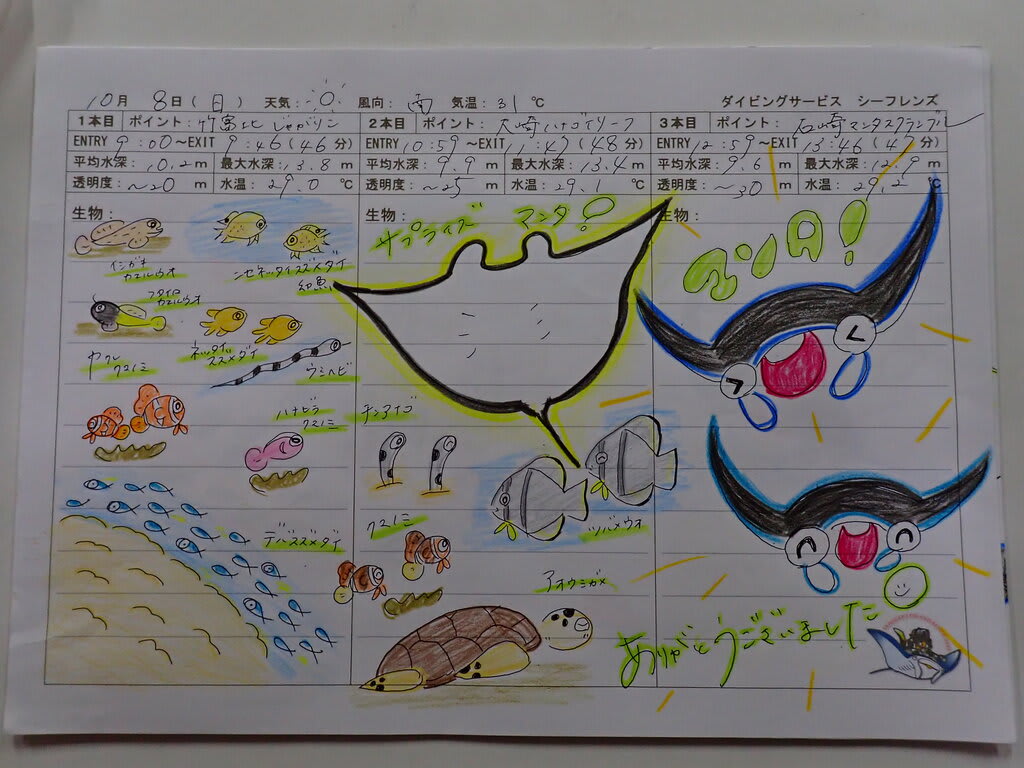 10月 8日(日) 天気: 風向: 南 気温: 31 ℃
ダイビングサービス シーフレンズ
1本目 ポイント: 竹富北 じゃがりこ
2本目 ポイント: 大崎ハナゴイリーフ
3本目 ポイント: 石崎マンタスクランブル
ENTRY 9:00~EXIT 9:46(46分)
ENTRY 10:59~EXIT 11:47(48分)
ENTRY 12:59~EXIT 13:46(47分)
平均水深: 10.2 m 最大水深: 13.8 m
平均水深: 9.9 m 最大水深: 13.4 m
平均水深: 9.6 m 最大水深: 12.9 m
透明度: ~20 m 水温: 29.0 ℃
透明度: ~25 m 水温: 29.1 ℃
透明度: ~30 m 水温: 29.2 ℃
生物:
イシガキ
カエルウオ
ニセネッタイスズメダイ
幼魚
フタイロ
カエルウオ
ネッタイ
スズメダイ
ウミヘビ
ヤクシマ
クマノミ
ハナビラ
クマノミ
デバスズメダイ
生物:
サプライズ マンタ!
チンアナゴ
ツバメウオ
クマノミ
アオウミガメ
生物:
マンタ!
ありがとうございました